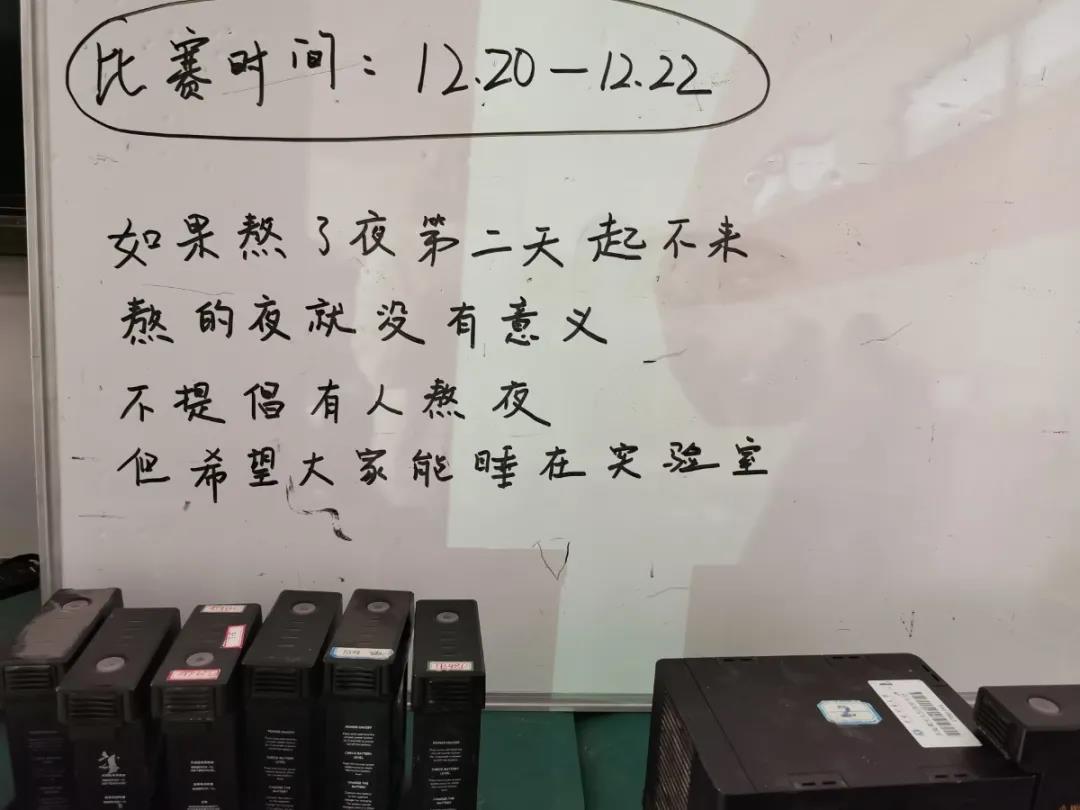 比赛时间：12.20—12.22
如果熬了夜第二天起不来
熬的夜就没有意义
不提倡有人熬夜
但希望大家能睡在实验室
POWER ON/OFF
CHECK BATTERY
LEVEL
CHARGE THE
2